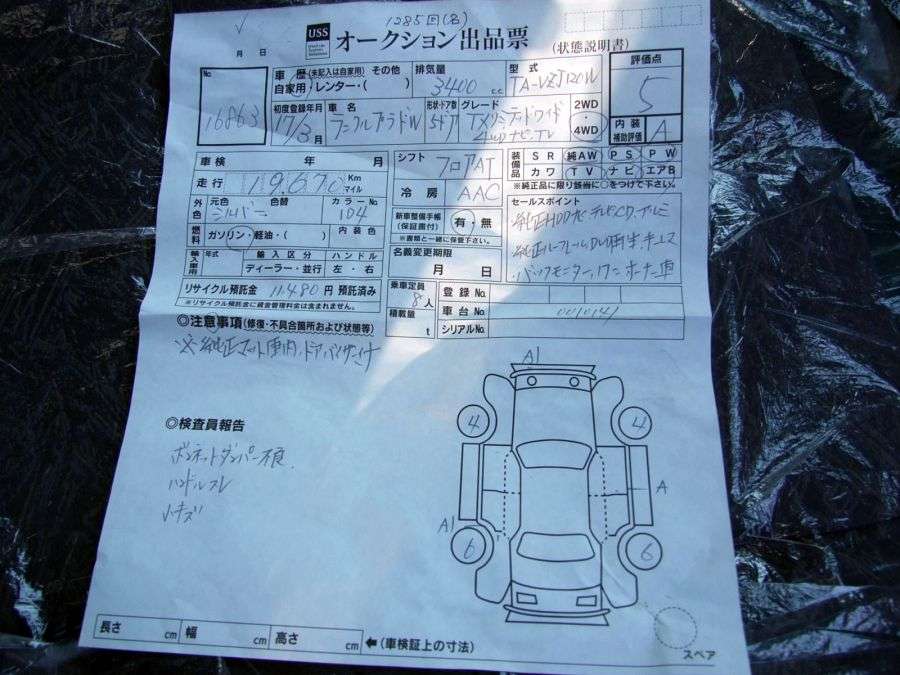 1285回(名)
USS オークション出品票 (状態説明書)
月 日
No. 16863
車歴 (未記入は自家用) その他
自家用 レンター・( )
排気量 3400 cc
型式 TA-VZJ120W
評価点 5
初度登録年月 17/3月
車名
形状・ドア数 5ドア
グレード TXリミテッドワイド
ナビ、TV
2WD・4WD
内装補助評価 A
車検 年 月
シフト フロアAT
装備品 SR 純AW PS PW
カワ TV ナビ エアB
※純正品に限り該当に○をつけて下さい。
走行 19,670 Km マイル
冷房 AAC
外色 元色 シルバー 色替 カラーNo. 1D4
燃料 ガソリン・軽油・( ) 内装色
新車整備手帳(保証書付) 有・無
※書類と一緒に保管下さい。
セールスポイント
純正HDDナビ テレビ、CD、アルミ
純正 キーレス
バックモニター、ワンオーナー車
輸入車用 年式 輸入区分 ハンドル
ディーラー・並行 左・右
名義変更期限
月 日
リサイクル預託金 11,480 円 預託済み
※リサイクル預託金に資金管理料金は含まれません。
乗車定員 8人
積載量 t
登録No.
車台No. 0010141
シリアルNo.
◎注意事項(修復・不具合箇所および状態等)
※純正マット車内、ドアバイザー付
◎検査員報告
ボンネットダンパー不良
ハンドルスレ
小キズ
A1
4 4
A
A1
6 6
スペア
長さ cm 幅 cm 高さ cm ←(車検証上の寸法)